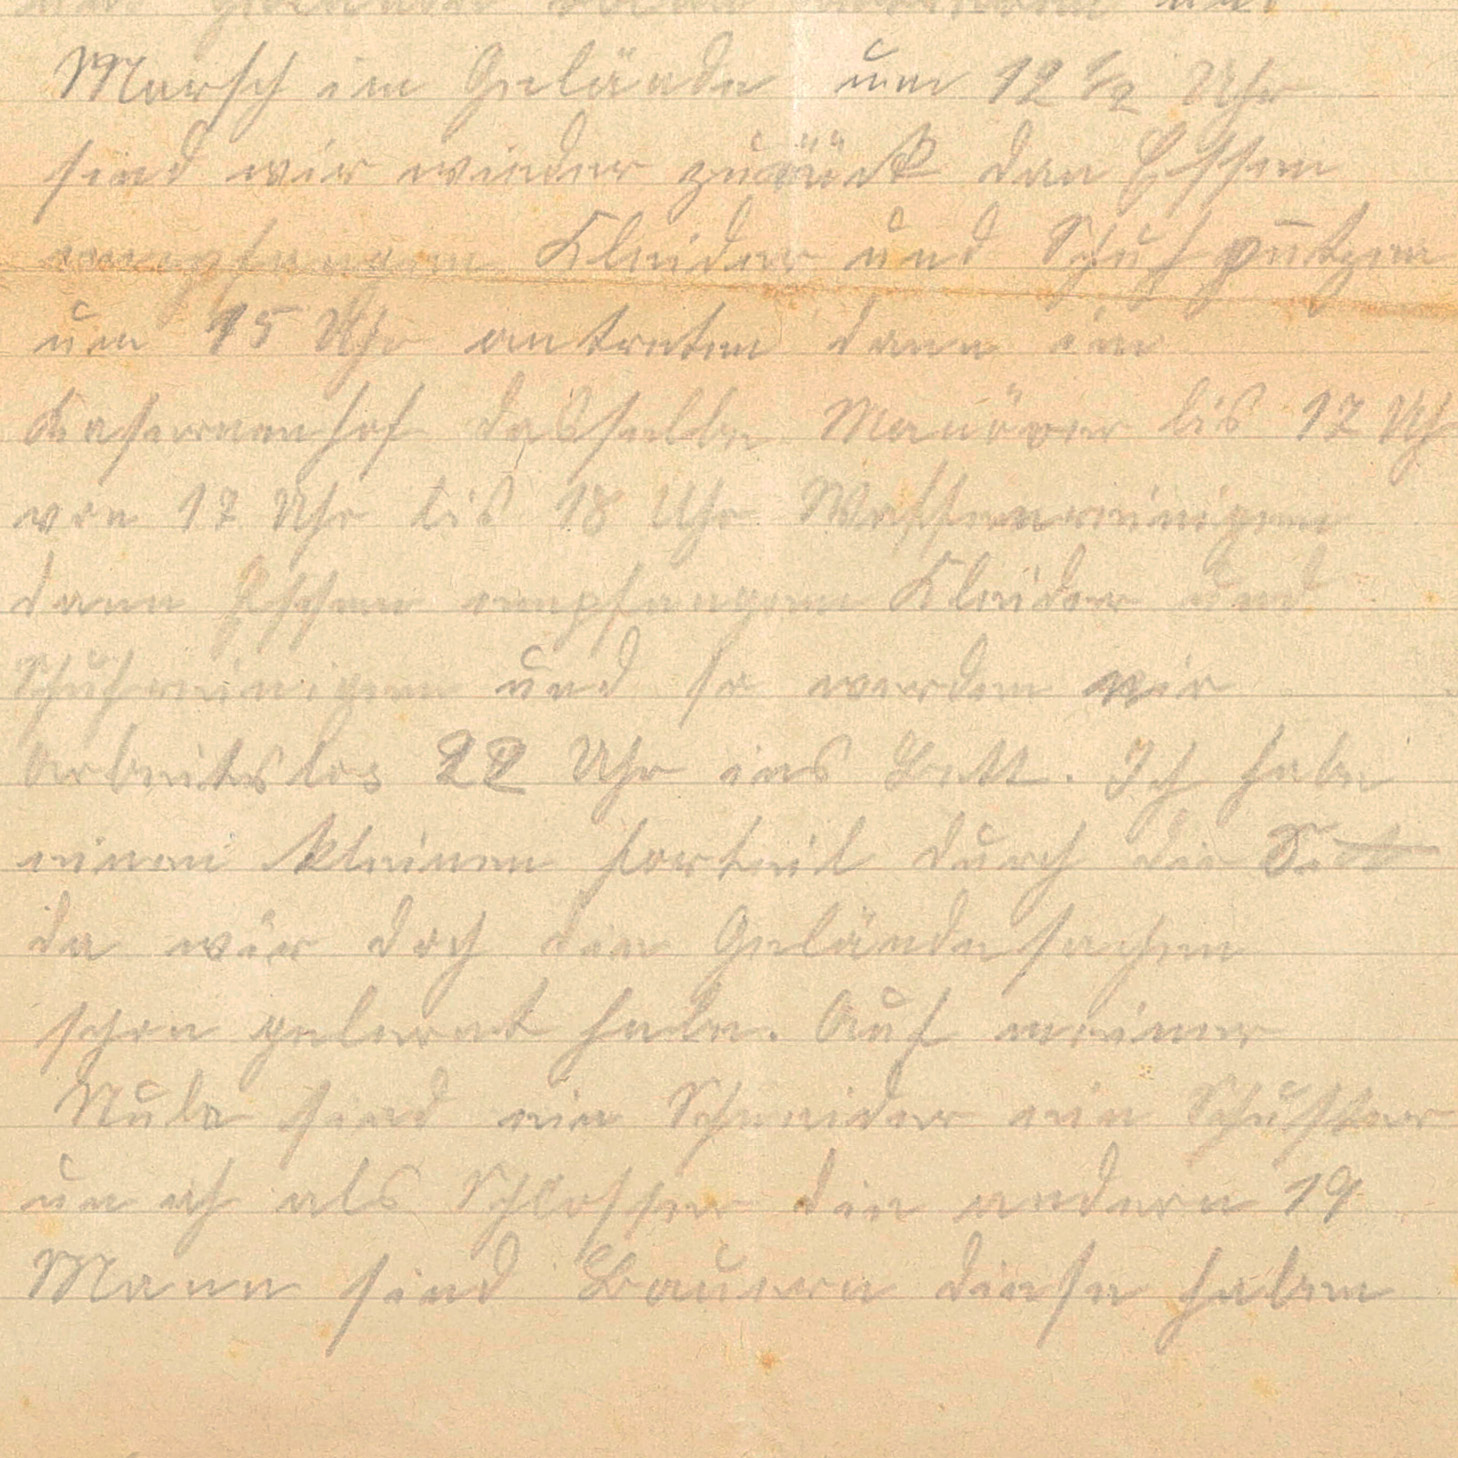 Marsch im Gelände um 12 1/2 Uhr
sind wir wieder zurück dan Essen
empfangen Kleider und Schuh putzen
um 15 Uhr antreten dann im
Kasernenhof dasselbe Manöver bis 17 Uh
von 17 Uhr bis 18 Uhr Waffenreinigen
dann Essen empfangen Kleider und
Schuhreinigen und so werden wir
Arbeitslos 22 Uhr ins Bett. Ich habe
einen kleinen forteil durch die
da wir doch den Geländesachen
schon gelernt habe. Auf meiner
Stube sind ein Schneider ein Schuster
un ich als Schlosser die andern 19
Mann sind Bauern diese haben